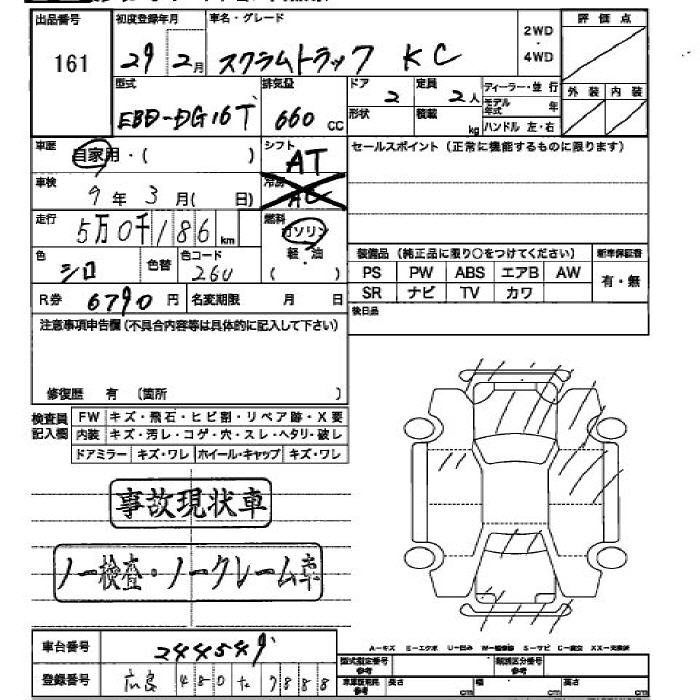 出品番号 161
初度登録年月 29 2月
車名・グレード スクラムトラック KC
2WD・4WD
評価点
外装 内装
型式 EBD-DG16T
排気量 660 cc
ドア 2
定員 2人
形状
積載 kg
ディーラー・並行
モデル年式 年
ハンドル 左・右
車歴 自家用・( )
シフト AT
セールスポイント(正常に機能するものに限ります)
車検 9年3月( 日)
冷房 AC
走行 5万0千186km
燃料 ガソリン
軽・油
( )
色 シロ
色替
色コード 26U
装備品(純正品に限り○をつけてください)
新車保証書
PS PW ABS エアB AW
有・無
SR ナビ TV カワ
R券 6790円
名変期限 月 日
後日品
注意事項申告欄(不具合内容等は具体的に記入して下さい)
修復歴 有 (箇所 )
検査員記入欄
FW キズ・飛石・ヒビ割・リペア跡・X要
内装 キズ・汚レ・コゲ・穴・スレ・ヘタリ・破レ
ドアミラー キズ・ワレ ホイール・キャップ キズ・ワレ
事故現状車
ノー検査・ノークレーム車
A−キズ E−エクボ U−凹み W−補修跡 S−サビ C−腐食 XX−交換済
車台番号 244549
型式指定番号 参考
類別区分番号 参考
登録番号 広島 480 た 9888
長さ cm
幅 cm
高さ cm